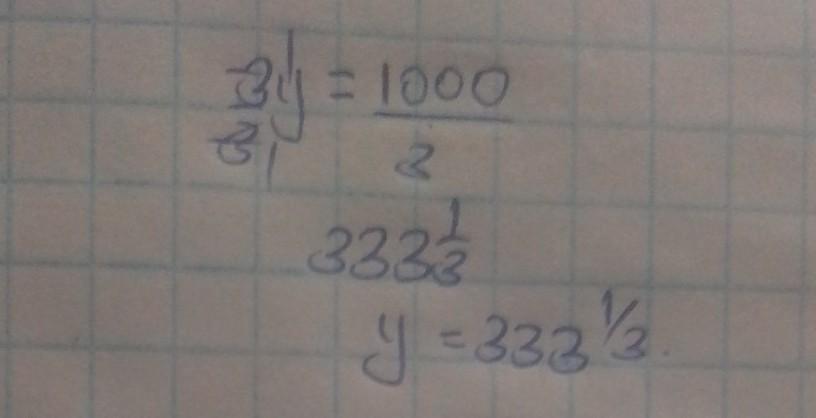 3y/3 = 1000/3
333 1/3
y = 333 1/3.